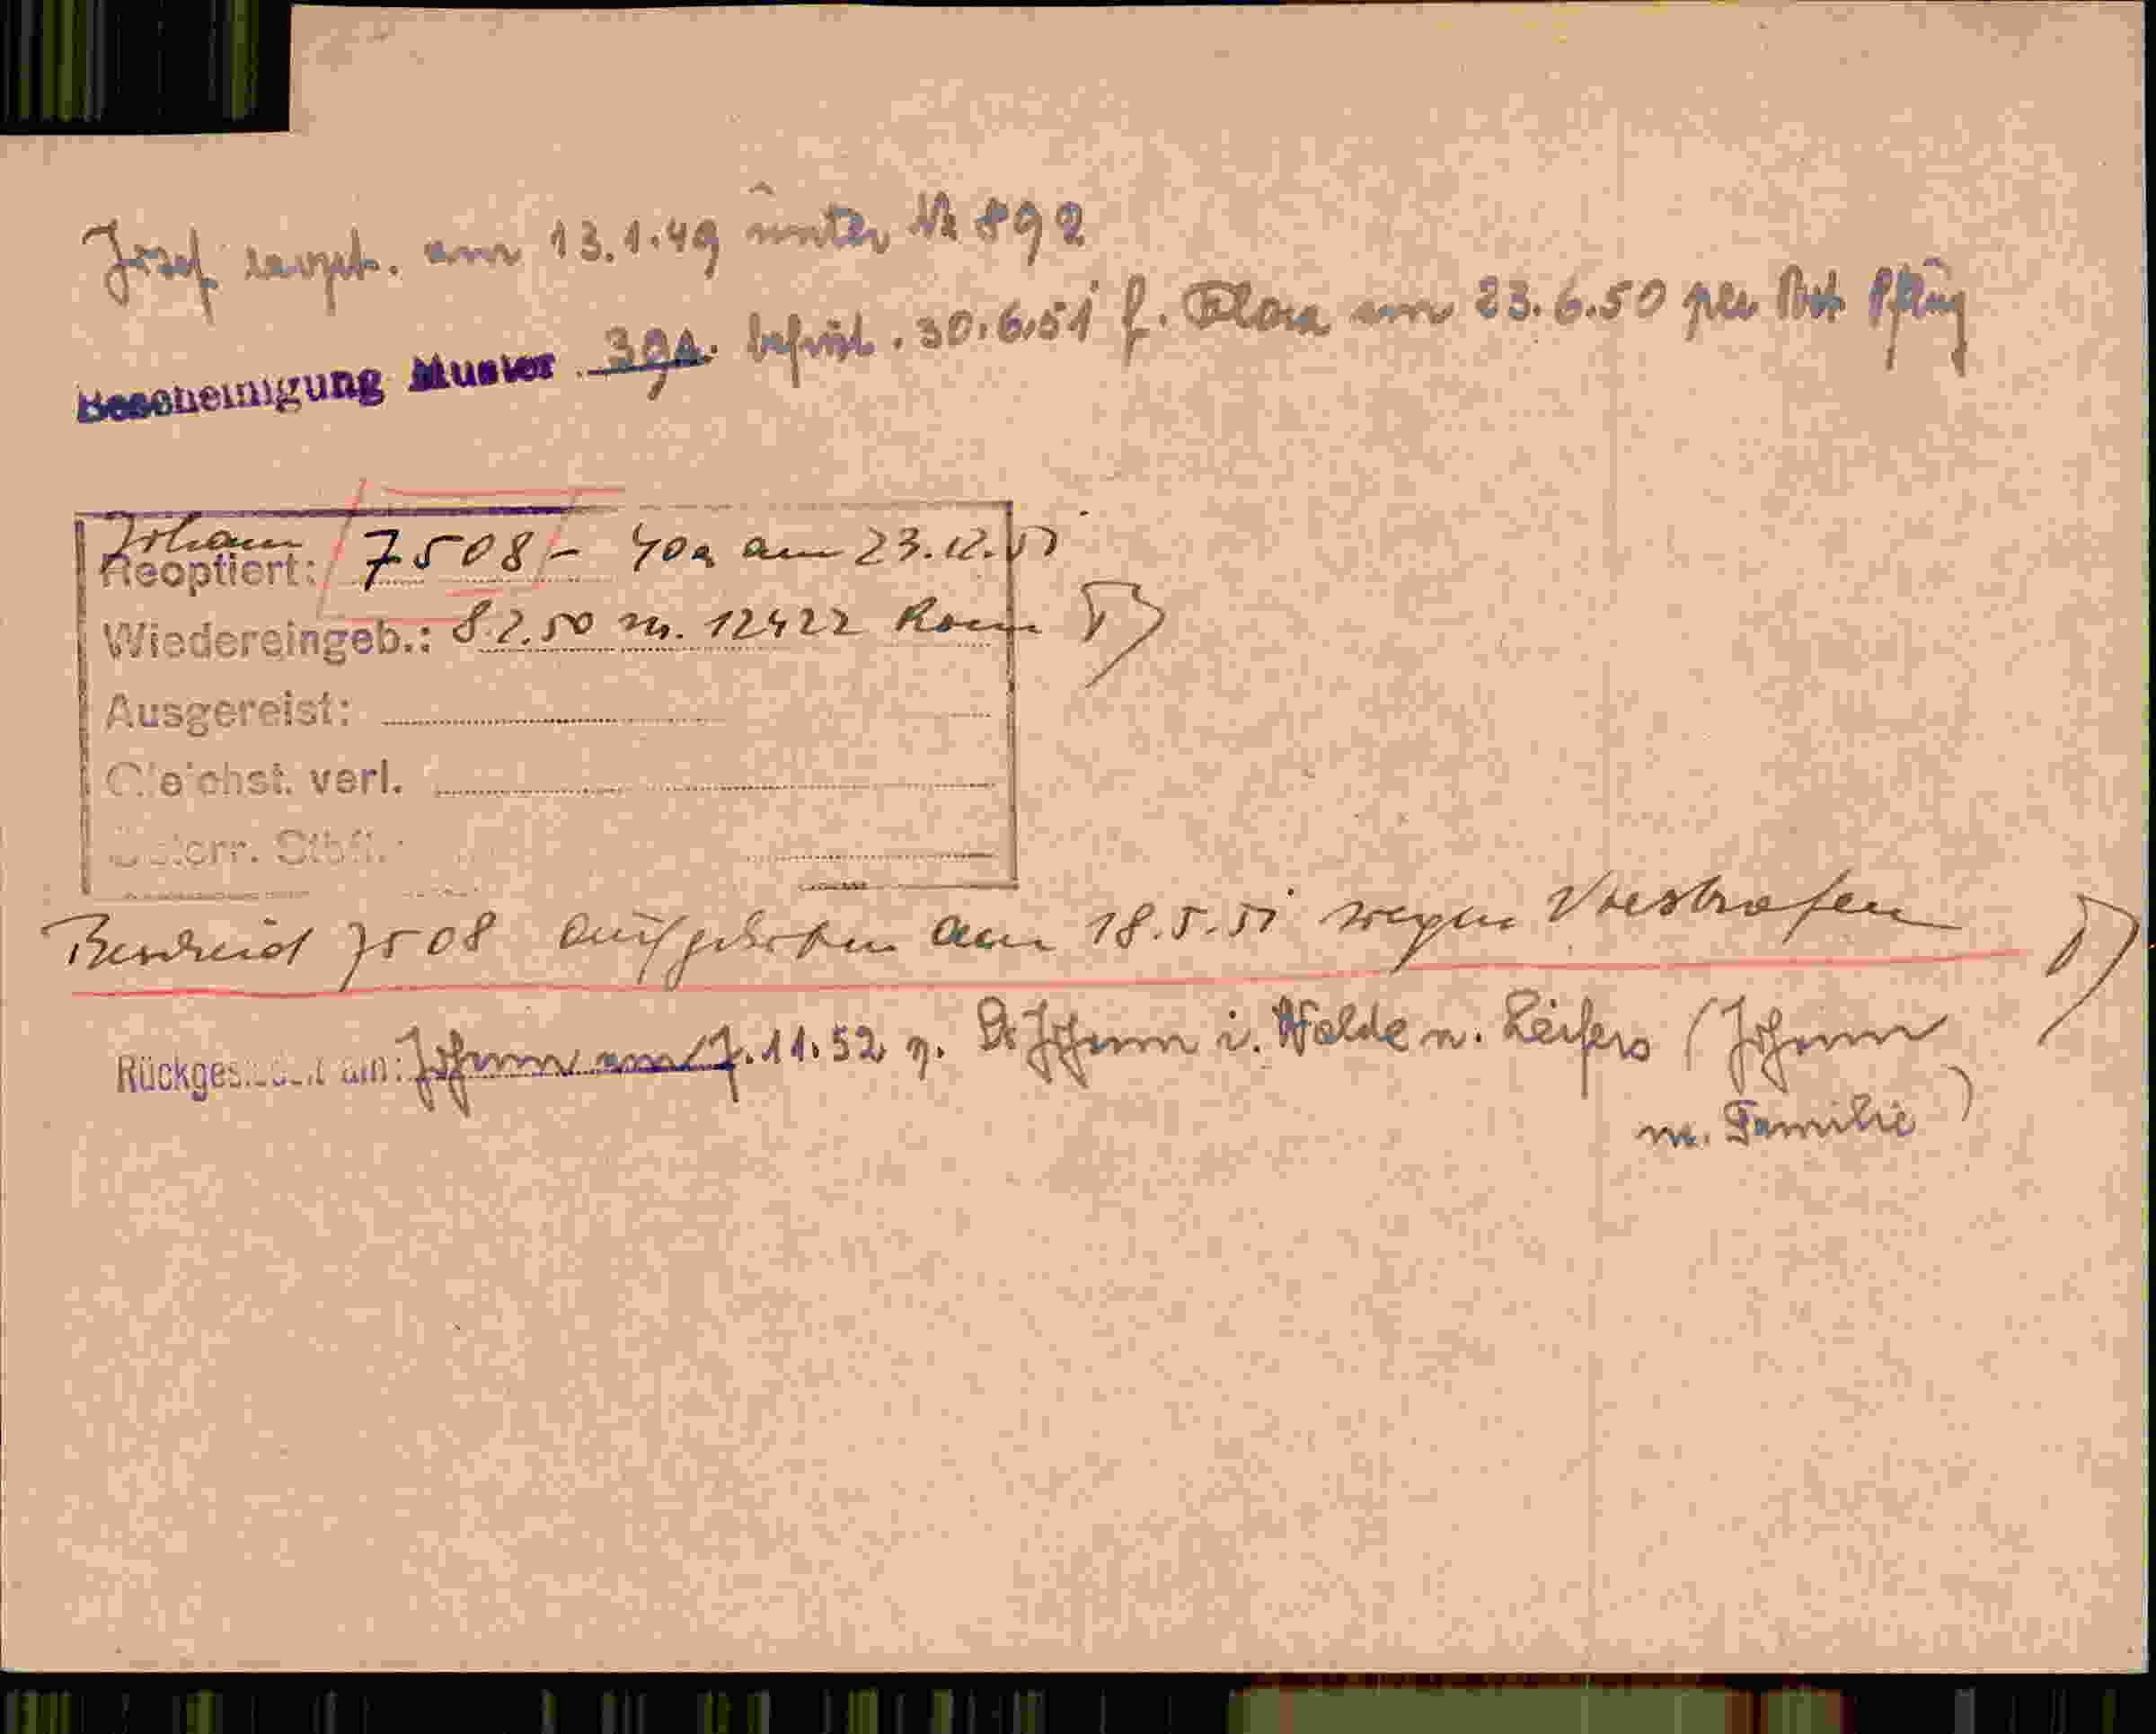 Josef reopt. am 13.1.49 unter Nr 892
Bescheinigung Muster 39a. befrist. 30.6.51 f. Flora am 23.6.50 per Post
Johann
Reoptiert: 7508 - 40a am 23.12.
Wiedereingeb.: 8.2.50 Nr. 12422 Rom
Ausgereist:
Gleichst. verl.
Österr. Stbg.:
Bescheid 7508 aufgehoben am 18.5.51 wegen Vorstrafen
Rückgesiedelt am: Johann am 7.11.52 n. St Johann i. Walde n. Leifers (Johann
m. Familie)